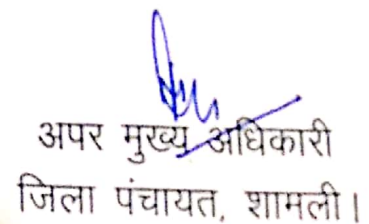 अपर मुख्य अधिकारी
जिला पंचायत, शामली।